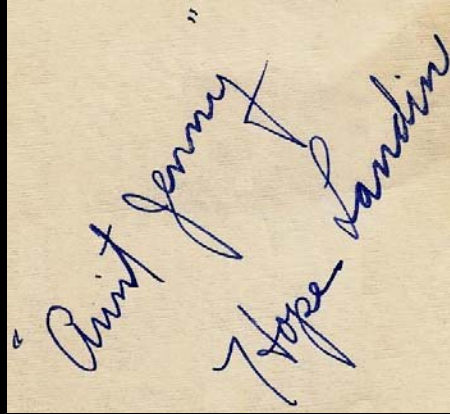 "Aunt Jenny"
Hope Landin